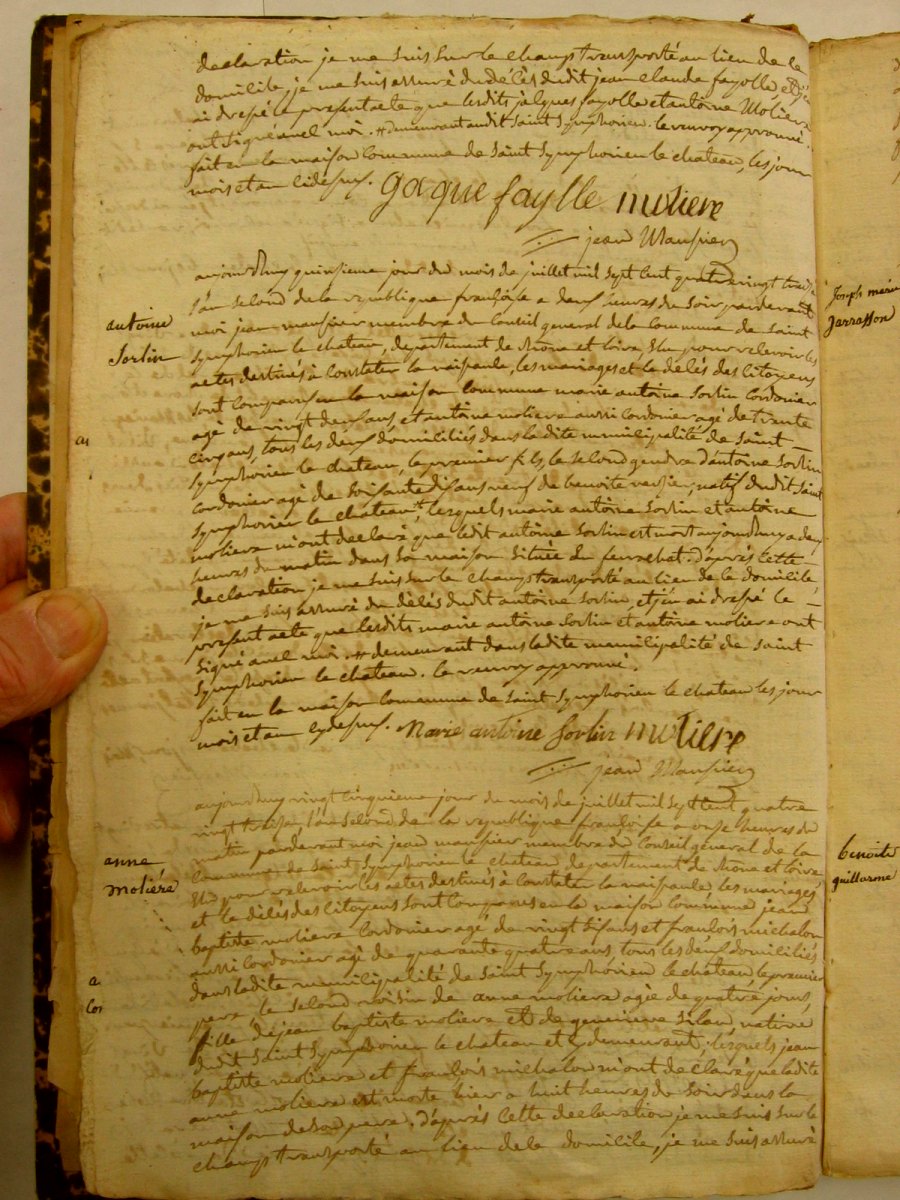 declaration je me suis sur le champ transporté au lien de le
domicile, je me suis assuré du délès dudit jean claude fayolle et j'en
ai dressé le present acte que lesdits jacques fayolle et antoine Moliere
ont signé avec moi. # demeurant audit Saint Symphorien. le renvoy approuvé.
fait en la maison commune de Saint Symphorien le chateau, les jour
mois et an cidessus. Gaque faylle moliere
jean Mansier
aujourdhuy quinsieme jour du mois de juillet mil sept cent quatrevingt treise
l'an second de la republique françoise a deux heures du soir pardevant
antoine
Sorlin
moi jean mansier membre du Conseil general de la Commune de Saint
Symphorien le chateau, departement de Rhone et loire, Elu pour recevoir les
actes destinés à constater la naissance, les mariages et le délés des Citoyens
sont comparus en la maison commune marie antoine Sorlin cordonier
agé de vingt deux ans, et antoine moliere aussi cordonier agé de trente
cinq ans, tous les deux domiciliés dans ladite municipalité de Saint
Symphorien le chateau, le premier fils, le second gendre d'antoine Sorlin
cordonier agé de soisante dix ans veuf de benoite verier, natif dudit Saint
Symphorien le chateau #, lesquels marie antoine Sorlin et antoine
moliere m'ont declaré que ledit antoine Sorlin est mort aujourdhuy a deux
heures du matin dans sa maison située . d'après cette
declaration je me suis sur le champ transporté au lien de le domicile
je me suis assuré du délés dudit antoine Sorlin, et j'en ai dressé le
present acte que lesdits marie antoine Sorlin et antoine moliere ont
signé avec moi. # demeurant dans ladite municipalité de Saint
Symphorien le chateau. le renvoy approuvé.
fait en la maison commune de Saint Symphorien le chateau les jour
mois et an cydessus. Marie antoine Sorlin moliere
jean Mansier
aujourdhuy vingt cinquieme jour du mois de juillet mil sept cent quatre
vingt treise l'an second de la republique françoise a onse heures du
matin pardevant moi jean mansier membre du Conseil general de la
anne
moliére
Commune de Saint Symphorien le chateau departement de Rhone et loire,
Elu pour recevoir les actes destinés à constater la naissance les mariages
et le délés des Citoyens sont comparus en la maison commune jean
baptiste moliere Cordonier agé de vingt six ans et françois michalon
aussi Cordonier agé de quarante quatre ans, tous les deux domiciliés
dans ladite municipalité de Saint Symphorien le chateau, le premier
pere le second voisin de anne moliere agée de quatre jours,
fille de jean baptiste moliere et de genevieve Silan native
dudit Saint Symphorien le chateau et y demeurant. lesquels jean
baptiste moliere et françois michalon m'ont declaré que ladite
anne moliere est morte hier a huit heures du soir dans la
maison de son pere. d'après cette declaration je me suis sur le
champ transporté au lien de le domicile, je me suis assuré
Joseph marie
Jarrasson
benoite
guillarme